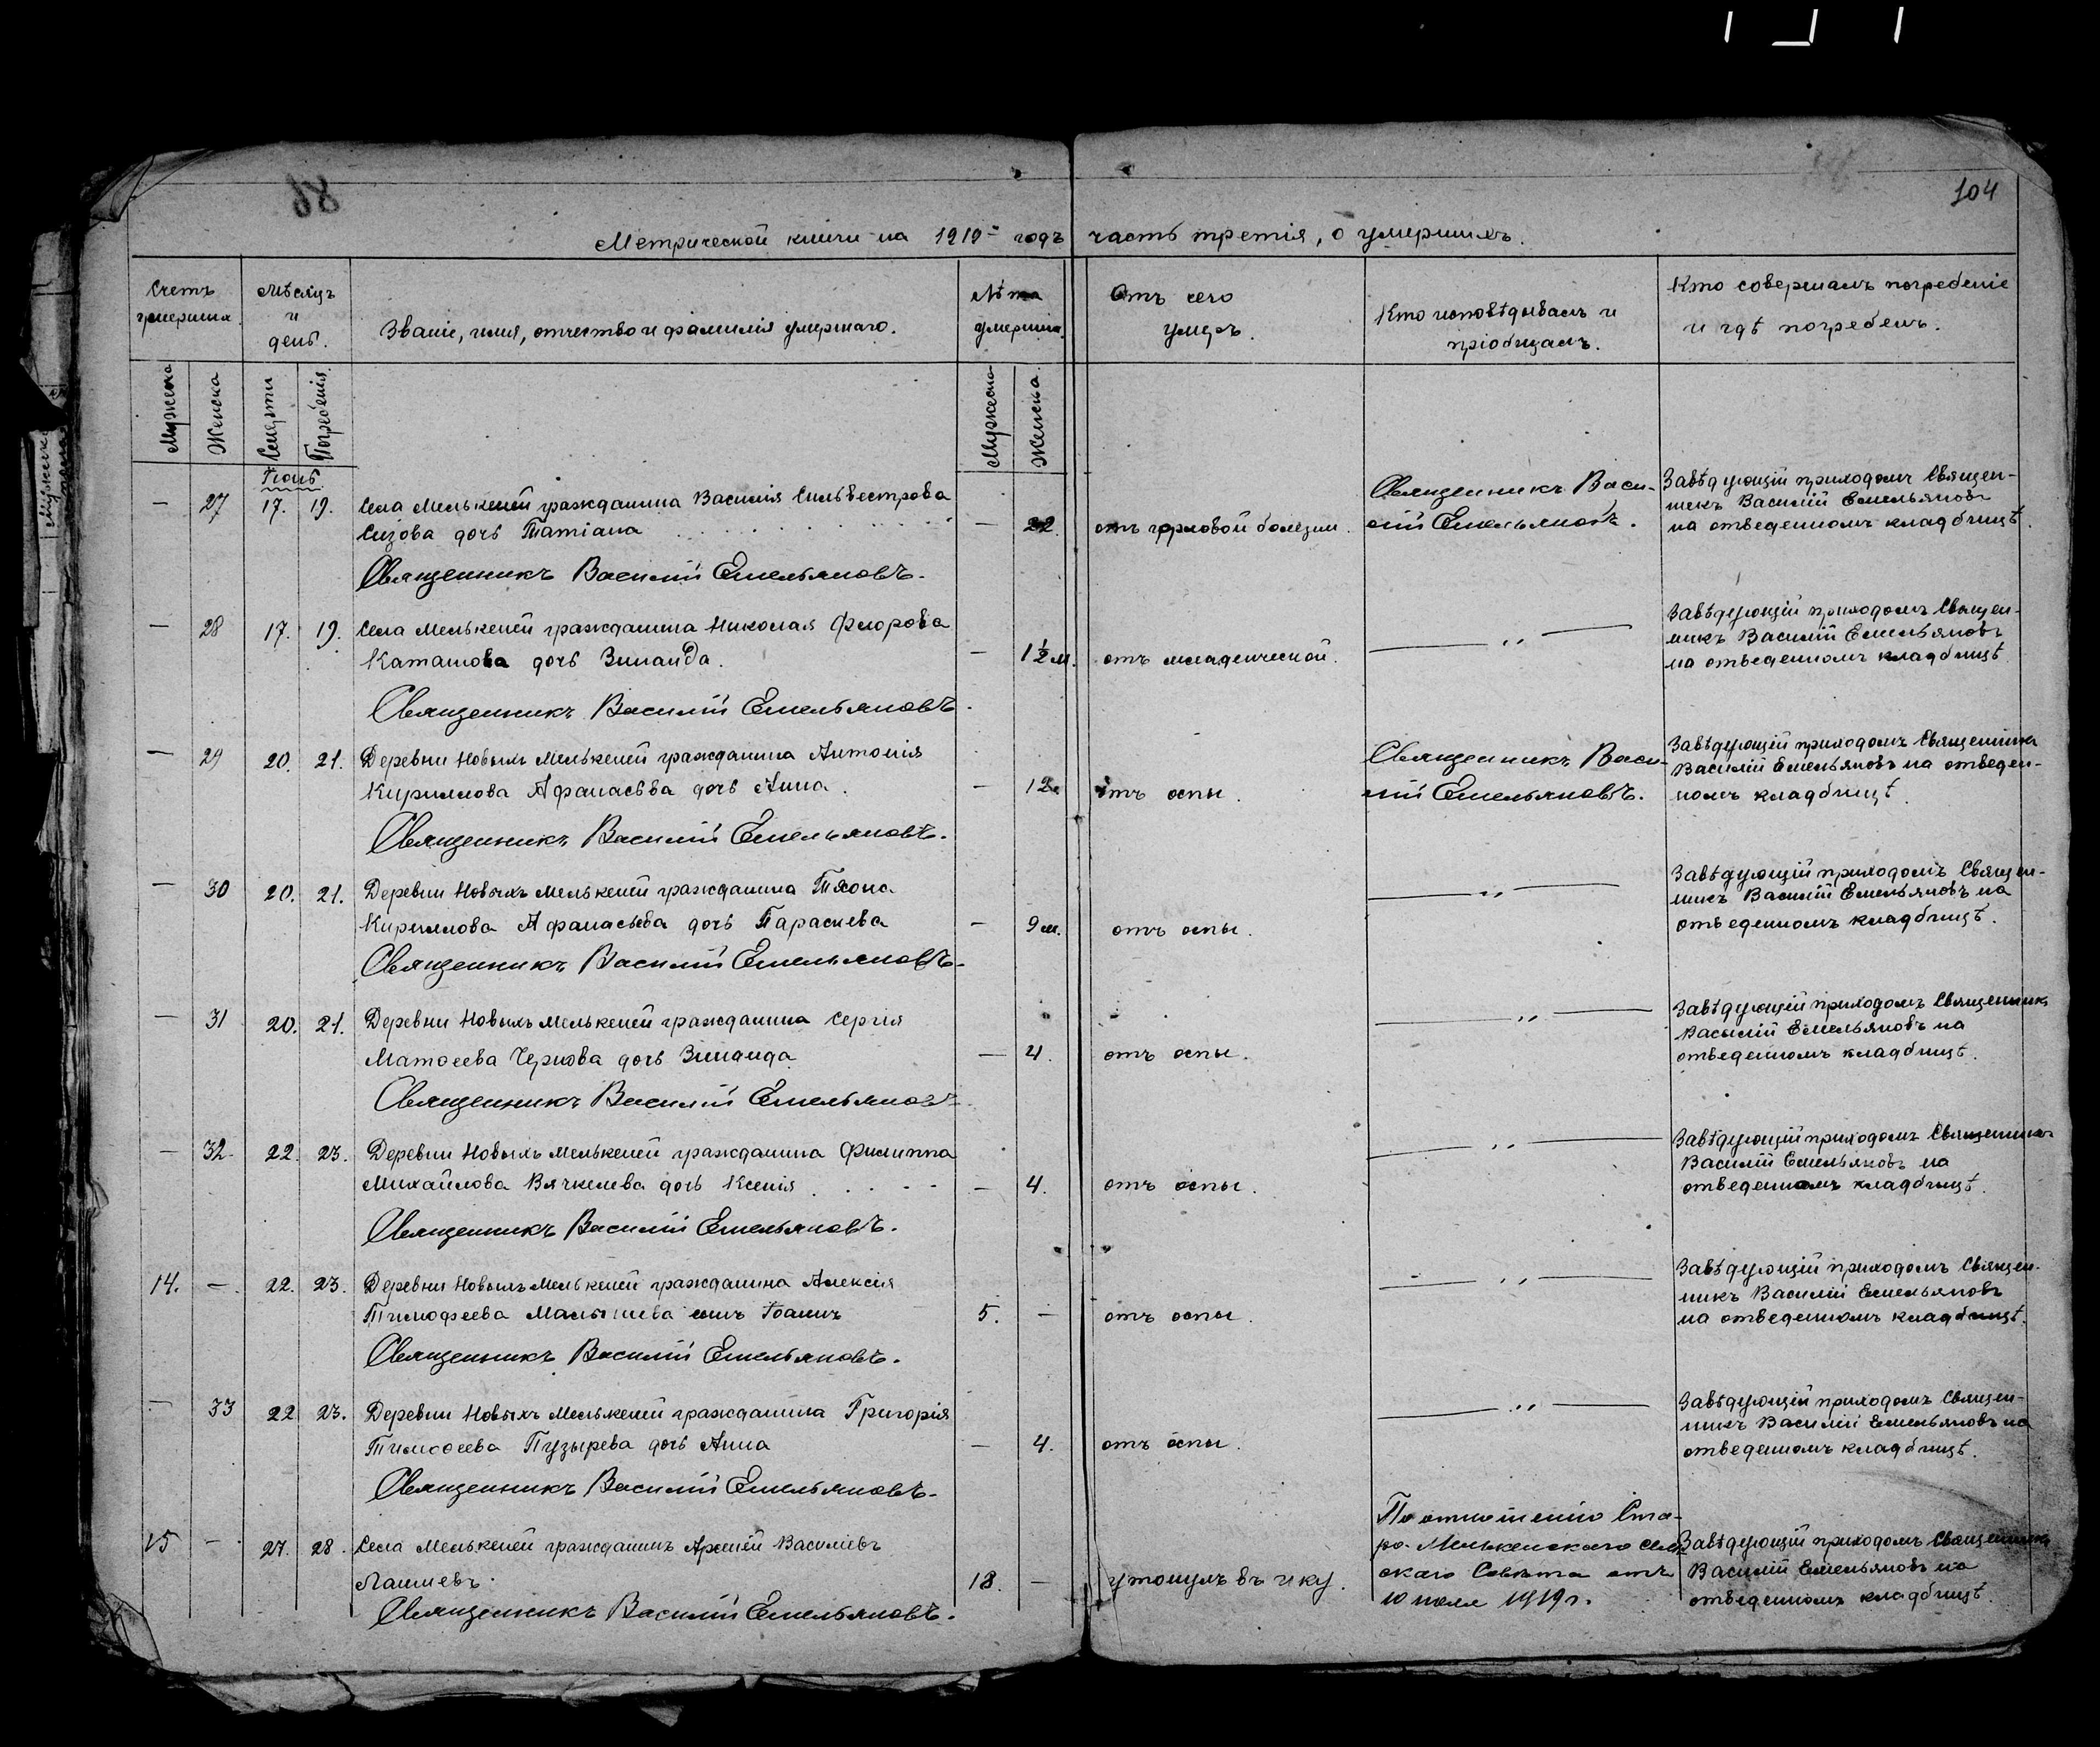 104
Метрической книги на 1919 й годъ часть третія, о умершихъ.
Счетъ умерших.
Мѣсяцъ и день.
Званіе, имя, отчество и фамилія умершаго.
Лѣта умерших.
Отъ чего умеръ.
Кто исповѣдывалъ и пріобщалъ.
Кто совершалъ погребеніе и гдѣ погребенъ.
Мужеска Женска Смерти Погребенія.
Мужеска Женска.
— 27 17. 19. Села Мелькеней гражданина Василія Сильвестрова
Сизова дочь Татіана — 22. отъ горловой болезни.
Священникъ Васи-
лій Емельяновъ.
Завѣдующій приходомъ Священ-
никъ Василій Емельяновъ
на отведенномъ кладбищѣ.
Священникъ Василій Емельяновъ.
— 28 17. 19. Села Мелькеней гражданина Николая Флорова
Каташова дочь Зинаида. — 1½ м. отъ младенческой. — „ —
Завѣдующій приходомъ Священ-
никъ Василій Емельяновъ
на отведенномъ кладбищѣ
Священникъ Василій Емельяновъ.
— 29 20. 21. Деревни Новыхъ Мелькеней гражданина Антонія
Кириллова Афанасьва дочь Анна. — 12. отъ оспы.
Священникъ Васи-
лій Емельяновъ.
Завѣдующій приходомъ Священника
Василій Емельяновъ на отведен-
номъ кладбищѣ.
Священникъ Василій Емельяновъ.
— 30 20. 21. Деревни Новыхъ Мелькеней гражданина Тихона
Кириллова Афанасьева дочь Параскева — 9 м. отъ оспы. — „ —
Завѣдующій приходомъ Священ-
никъ Василій Емельяновъ на
отведенномъ кладбищѣ.
Священникъ Василій Емельяновъ.
— 31 20. 21. Деревни Новыхъ Мелькеней гражданина Сергія
Матѳеева Чернова дочь Зинаида — 4. отъ оспы. — „ —
Завѣдующій приходомъ Священникъ
Василій Емельяновъ на
отведенномъ кладбищѣ.
Священникъ Василій Емельяновъ
— 32. 22. 23. Деревни Новыхъ Мелькеней гражданина Филиппа
Михайлова Вячкилева дочь Ксенія — 4. отъ оспы. — „ —
Завѣдующій приходомъ Священникъ
Василій Емельяновъ на
отведенномъ кладбищѣ.
Священникъ Василій Емельяновъ.
14. — 22. 23. Деревни Новыхъ Мелькеней гражданина Алексія
Тимофеева Малышева сынъ Іоаннъ 5. — отъ оспы. — „ —
Завѣдующій приходомъ Священ-
никъ Василій Емельяновъ
на отведенномъ кладбищѣ.
Священникъ Василій Емельяновъ.
— 33 22 23. Деревни Новыхъ Мелькеней гражданина Григорія
Тимоѳеева Пузырева дочь Анна — 4. отъ оспы. — „ —
Завѣдующій приходомъ Священ-
никъ Василій Емельяновъ на
отведенномъ кладбищѣ.
Священникъ Василій Емельяновъ.
15 — 27. 28. Села Мелькеней гражданинъ Арсеній Василіевъ
18. — утонулъ въ Ику.
По отношенію Ста-
ро-Мелькенскаго сель-
скаго Совѣта отъ
10 іюля 1919 г.
Завѣдующій приходомъ Священникъ
Василій Емельяновъ на
отведенномъ кладбищѣ.
Священникъ Василій Емельяновъ.